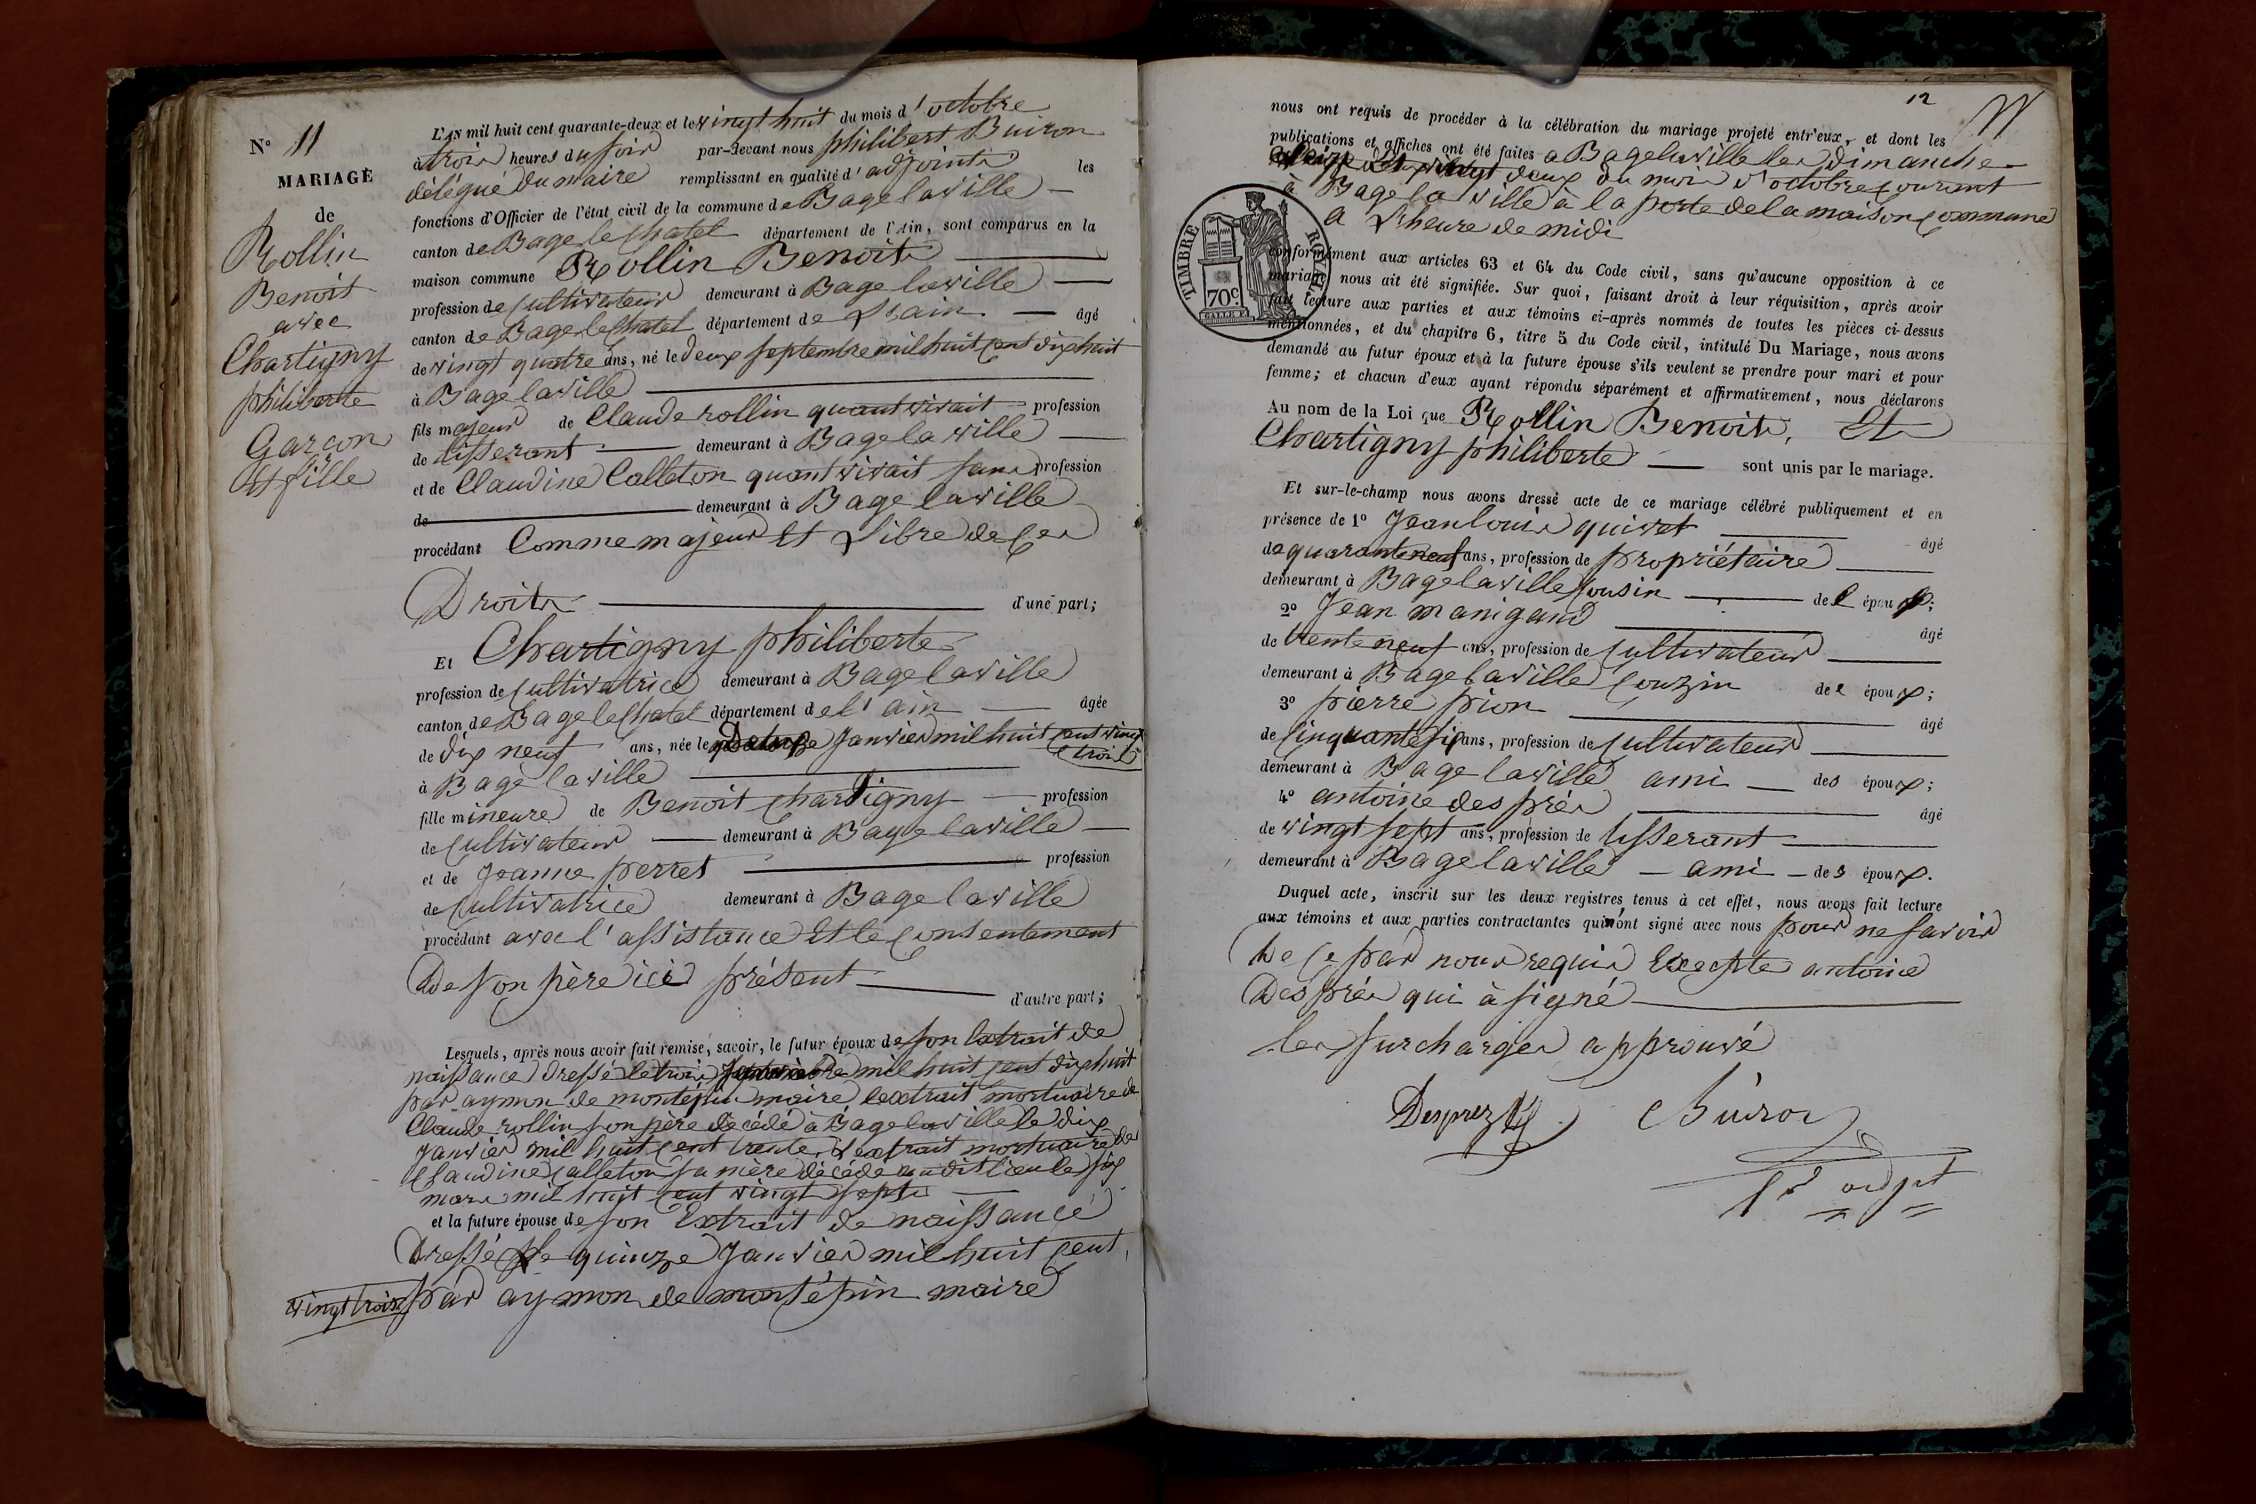 N° 11
MARIAGE
de
Rollin
Benoit
avec
Chartigny
philiberte
Garçon
et fille
L'AN mil huit cent quarante-deux et le vingt huit du mois d'octobre
à trois heures du soir par-devant nous philibert Buiron
délégué du maire remplissant en qualité d'adjoint les
fonctions d'Officier de l'état civil de la commune de Bage la ville
canton de Bage le Chatel département de l'Ain, sont comparus en la
maison commune Rollin Benoit
profession de cultivateur demeurant à Bage la ville
canton de Bage le Chatel département de Lain âgé
de vingt quatre ans, né le deux septembre mil huit cent dix huit
à Bage la ville
fils majeur de Claude rollin quant vivait profession
de tisserant demeurant à Bage la ville
et de Claudine Calleton quant vivait sans profession
de demeurant à Bage la ville
procédant Comme majeur et Libre de ces
Droits d'une part;
Et Chartigny philiberte
profession de cultivatrice demeurant à Bage la ville
canton de Bage le Chatel département de l'ain âgée
de dix neuf ans, née le Janvier mil huit cent vingt
trois
à Bage la ville
fille mineure de Benoit Chartigny profession
de cultivateur demeurant à Bage la ville
et de Jeanne perret profession
de cultivatrice demeurant à Bage la ville
procédant avec l'assistance et le consentement
De son père ici présent d'autre part;
Lesquels, après nous avoir fait remise, savoir, le futur époux de son Extrait de
naissance dressé le trois septembre mil huit cent dix huit
par aymon de montépin maire l'extrait mortuaire de
Claude rollin son père décédé à Bage la ville le dix
Janvier mil huit cent trente, L'extrait mortuaire de
Claudine Calleton sa mère décédé audit lieu le six
mars mil huit cent vingt sept
et la future épouse de son Extrait de naissance
Dressé le quinze Janvier mil huit cent
vingt trois par aymon de montépin maire
12
nous ont requis de procéder à la célébration du mariage projeté entr'eux, et dont les
publications et affiches ont été faites a Bage la ville les dimanche
deux du mois d'octobre courant
à Bage la ville à la porte de la maison commune
a L'heure de midi
TIMBRE ROYAL
70c.
conformément aux articles 63 et 64 du Code civil, sans qu'aucune opposition à ce
mariage nous ait été signifiée. Sur quoi, faisant droit à leur réquisition, après avoir
fait lecture aux parties et aux témoins ci-après nommés de toutes les pièces ci-dessus
mentionnées, et du chapitre 6, titre 5 du Code civil, intitulé Du Mariage, nous avons
demandé au futur époux et à la future épouse s'ils veulent se prendre pour mari et pour
femme; et chacun d'eux ayant répondu séparément et affirmativement, nous déclarons
Au nom de la Loi que Rollin Benoit, Et
Chartigny philiberte sont unis par le mariage.
Et sur-le-champ nous avons dressé acte de ce mariage célébré publiquement et en
présence de 1° Jean louis quivet âgé
de quarante neuf ans, profession de propriétaire
demeurant à Bage la ville cousin de l époux;
2° Jean manigand âgé
de trente neuf ans, profession de cultivateur
demeurant à Bage la ville couzin de l époux;
3° pierre pion âgé
de cinquante six ans, profession de cultivateur
demeurant à Bage la ville ami des époux;
4° antoine des prés âgé
de vingt sept ans, profession de tisserant
demeurant à Bage la ville ami des époux.
Duquel acte, inscrit sur les deux registres tenus à cet effet, nous avons fait lecture
aux témoins et aux parties contractantes qui n'ont signé avec nous pour ne savoir
De ce par nous requis Excepté antoine
Des prés qui à signé
les surcharges approuvé
Desprez Buiron
adjt